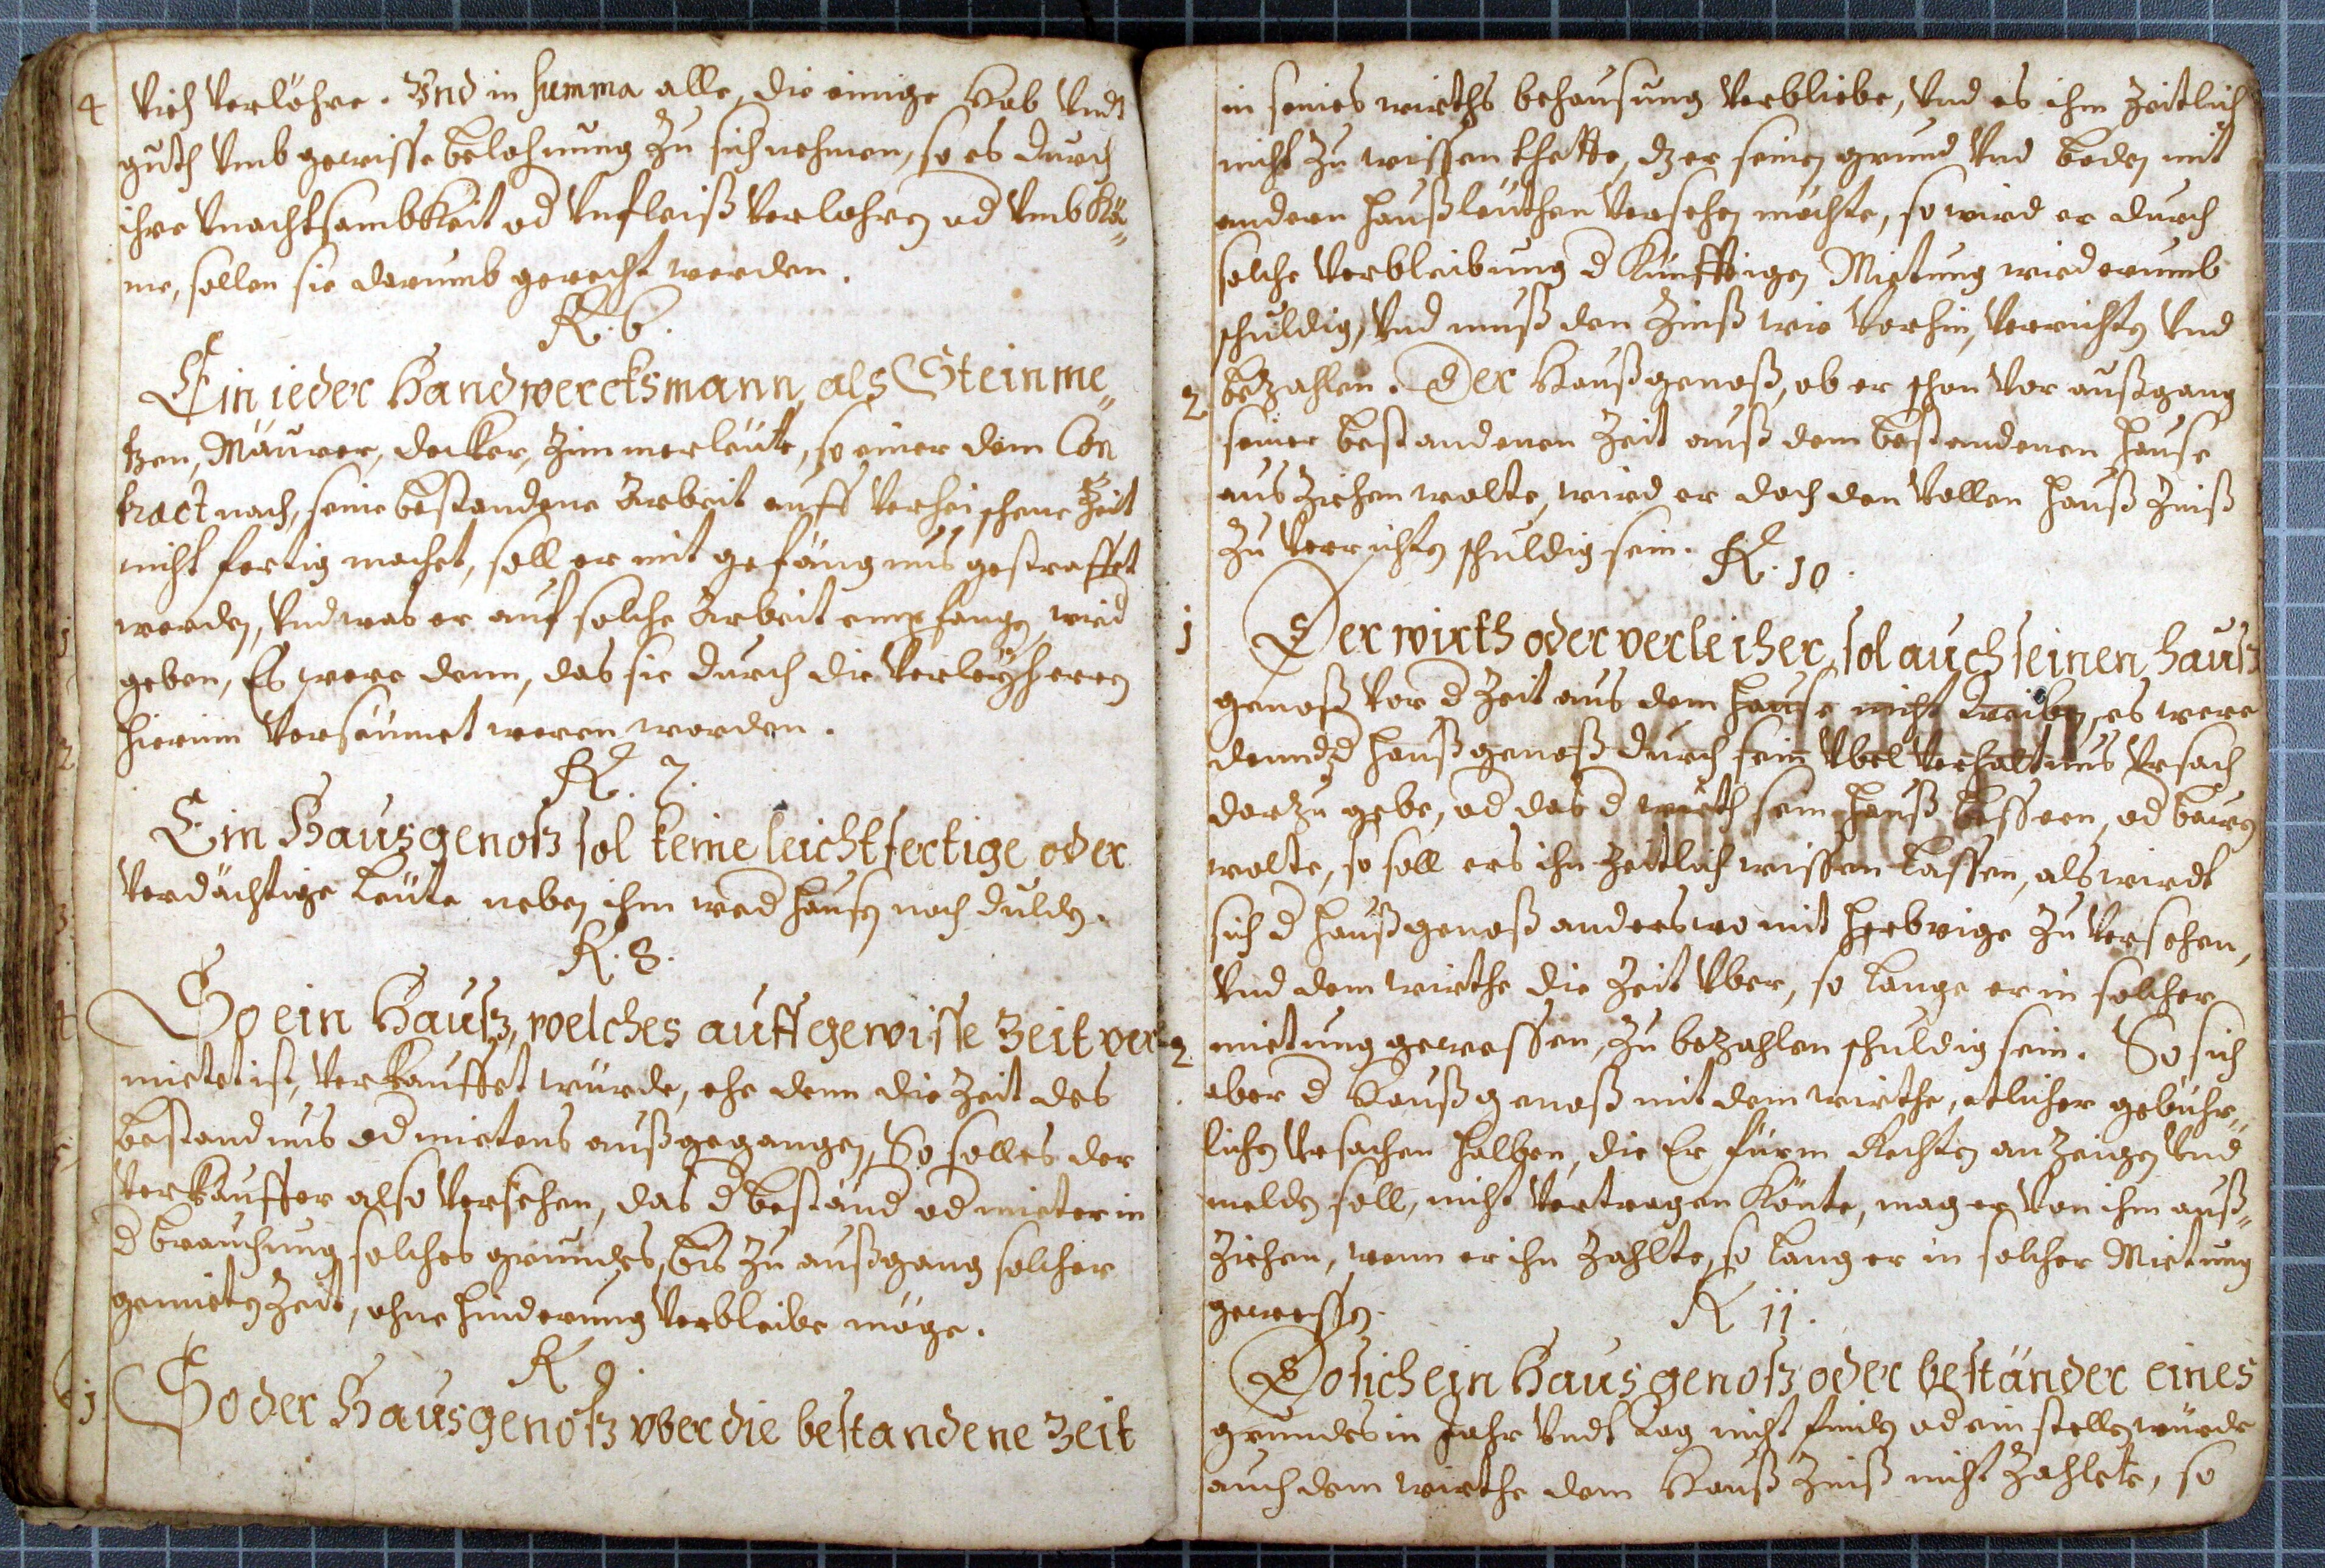 4 Vieh verlöhre. Vnd in summa alle, die einige Hab vndt
guth vmb gewisse belohnung zu sich nehmen, so es durch
ihre vnachtsambkeit od vnfleiß verlohren od vmbkä„
me, sollen sie darumb gerecht werden.
R. 6.
Ein ieder Handwercksmann, als Steinme„
tzen, Mäurer, decker, zimmerleüte, so einer dem Con
tract nach, seine bestandene Arbeit auff verheischene Zeit
nicht fertig machet, soll er mit gefängnus gestraffet
werden, vnd was er auf solche Arbeit empfangen, wied
geben, Es were denn, das sie durch die Verleyhherren
hierinn verseümet weren worden.
R. 7.
Ein Hausgenoß sol keine leichtfertige oder
verdächtige Leüte neben ihm wed hausen noch dulden.
R. 8.
So ein Hauß, welches auff gewisse Zeit ver
mietet ist, verkauffet würde, ehe denn die Zeit des
bestandnus od mietens außgegangen, So soll es der
Verkäuffer also versehen, das d bestand od mieter in
d brauchung solches grundes, bis zu außgang solcher
gemieten Zeit, ohne hinderung verbleibe möge.
R 9.
1 So der Hausgenoß vber die bestandene Zeit
in seines wirths behausung verbliebe, vnd es ihm zeitlich
nicht zu wissen thette, dz er seinen grund vnd boden mit
andern haußleüthen versehen möchte, so wird er durch
solche verbleibung d künfftigen Mietung wiederumb
schuldig, vnd muß den Zinß wie vorhin, verrichten vnd
2 bezahlen. Der Haußgenoß, ob er schon vor außgang
seiner bestandenen Zeit auß dem bestandenen hause
ausziehen wolte, wird er doch den vollen hauß Zinß
zu verrichten schuldig sein.
R. 10.
1 Der wirth oder verleiher, sol auch seinen hauß
genoß vor d Zeit aus dem hause nicht treiben, es were
denn dz d haußgenoß durch sein vbel verhaltnus vrsach
darzu gebe, od das d wirth sein hauß bessern, od bawen
wolte, so soll ers ihn zeitlich wissen lassen, als wirdt
sich d haußgenoß anderswo mit herbrige zu versehen,
vnd dem wirthe die Zeit vber, so lange er in solcher
2 mietung gewessen, zu bezahlen schuldig sein. So sich
aber d Haußgenoß mit dem wirthe, etlicher gebühr„
lichen vrsachen halben, die Er fürm Rechten anzeigen vnd
melden soll, nicht vertragen könte, mag er von ihm auß„
ziehen, wenn er ihn zahlte, so lang er in solcher Mietung
gewessen.
R 11.
So sich ein Hausgenoß oder beständer eines
grundes in Jahr vndt tag nicht finden od einstellen würde
auch dem wirthe dem Hauß Zinß nicht zahlete, so